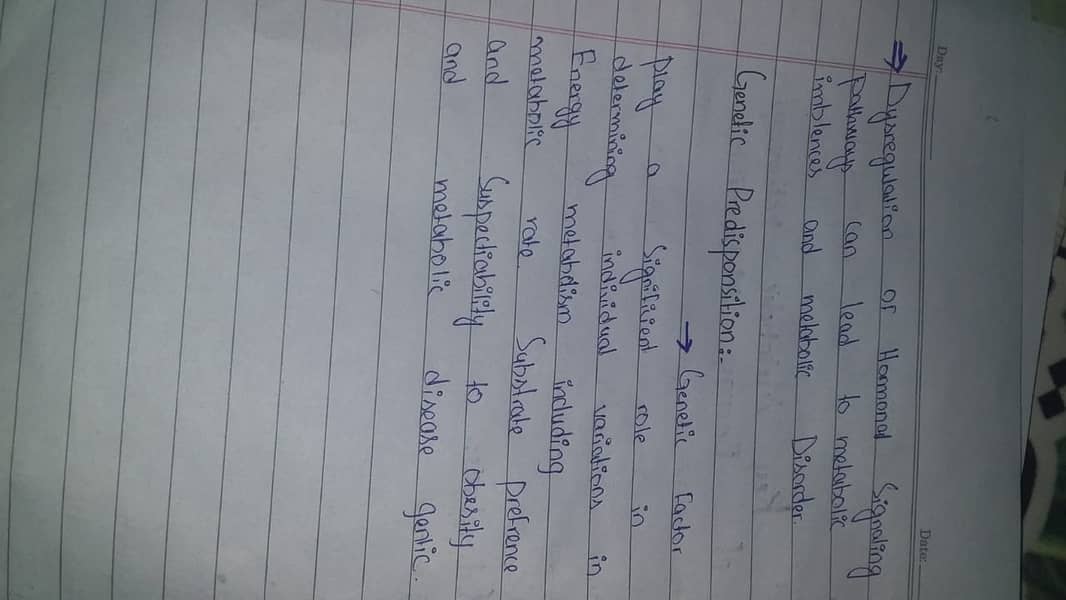 Day:
Date:
⇒ Dysregulation or Hormonal Signaling
Pathways can lead to metabolic
imblences and metabolic Disorder.
Genetic Predisponsition:-
→ Genetic Factor
Play a Significient role in
determining individual variations in
Energy metabolism including
metabolic rate. Substrate prefrence
and Suspectiability to obesity
and metabolic disease gentic.